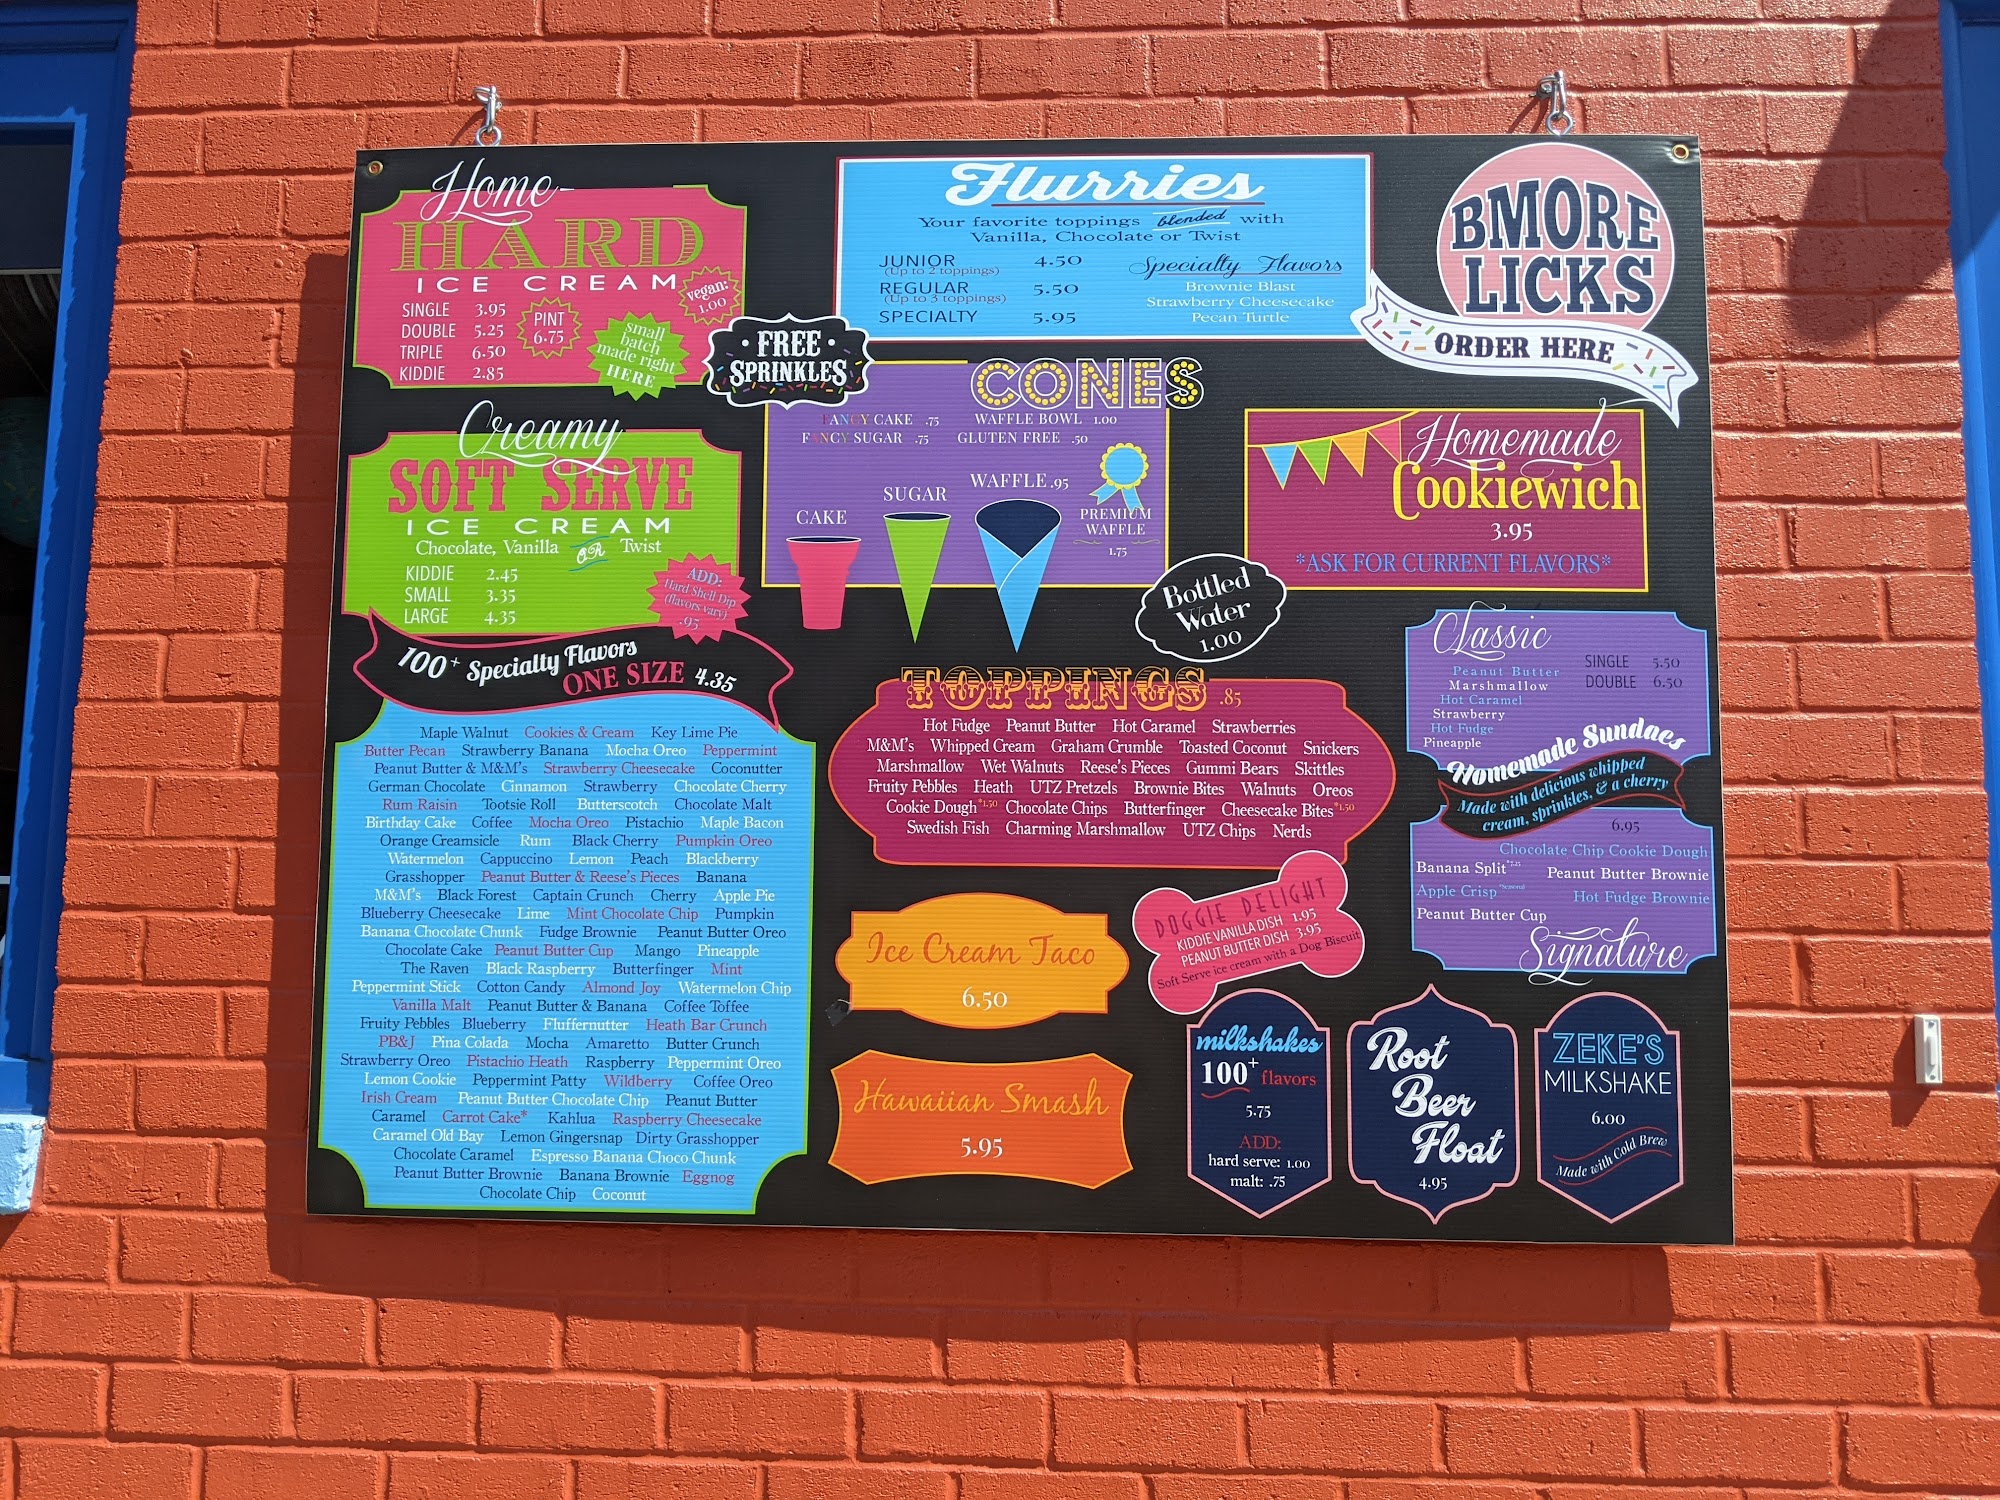 Home-
HARD
ICE CREAM
SINGLE 3.95
DOUBLE 5.25
TRIPLE 6.50
KIDDIE 2.85
PINT
6.75
vegan:
1.00
small
batch
made right
HERE
• FREE •
SPRINKLES
Flurries
Your favorite toppings blended with
Vanilla, Chocolate or Twist
JUNIOR 4.50
(Up to 2 toppings)
REGULAR 5.50
(Up to 3 toppings)
SPECIALTY 5.95
Specialty Flavors
Brownie Blast
Strawberry Cheesecake
Pecan Turtle
BMORE
LICKS
ORDER HERE
Creamy
SOFT SERVE
ICE CREAM
Chocolate, Vanilla OR Twist
KIDDIE 2.45
SMALL 3.35
LARGE 4.35
ADD:
Hard Shell Dip
(flavors vary)
.95
100+ Specialty Flavors
ONE SIZE 4.35
Maple Walnut Cookies & Cream Key Lime Pie
Butter Pecan Strawberry Banana Mocha Oreo Peppermint
Peanut Butter & M&M's Strawberry Cheesecake Coconutter
German Chocolate Cinnamon Strawberry Chocolate Cherry
Rum Raisin Tootsie Roll Butterscotch Chocolate Malt
Birthday Cake Coffee Mocha Oreo Pistachio Maple Bacon
Orange Creamsicle Rum Black Cherry Pumpkin Oreo
Watermelon Cappuccino Lemon Peach Blackberry
Grasshopper Peanut Butter & Reese's Pieces Banana
M&M's Black Forest Captain Crunch Cherry Apple Pie
Blueberry Cheesecake Lime Mint Chocolate Chip Pumpkin
Banana Chocolate Chunk Fudge Brownie Peanut Butter Oreo
Chocolate Cake Peanut Butter Cup Mango Pineapple
The Raven Black Raspberry Butterfinger Mint
Peppermint Stick Cotton Candy Almond Joy Watermelon Chip
Vanilla Malt Peanut Butter & Banana Coffee Toffee
Fruity Pebbles Blueberry Fluffernutter Heath Bar Crunch
PB&J Pina Colada Mocha Amaretto Butter Crunch
Strawberry Oreo Pistachio Heath Raspberry Peppermint Oreo
Lemon Cookie Peppermint Patty Wildberry Coffee Oreo
Irish Cream Peanut Butter Chocolate Chip Peanut Butter
Caramel Carrot Cake* Kahlua Raspberry Cheesecake
Caramel Old Bay Lemon Gingersnap Dirty Grasshopper
Chocolate Caramel Espresso Banana Choco Chunk
Peanut Butter Brownie Banana Brownie Eggnog
Chocolate Chip Coconut
CONES
FANCY CAKE .75 WAFFLE BOWL 1.00
FANCY SUGAR .75 GLUTEN FREE .50
CAKE
SUGAR
WAFFLE .95
PREMIUM
WAFFLE
1.75
Homemade
Cookiewich
3.95
*ASK FOR CURRENT FLAVORS*
Bottled
Water
1.00
TOPPINGS .85
Hot Fudge Peanut Butter Hot Caramel Strawberries
M&M's Whipped Cream Graham Crumble Toasted Coconut Snickers
Marshmallow Wet Walnuts Reese's Pieces Gummi Bears Skittles
Fruity Pebbles Heath UTZ Pretzels Brownie Bites Walnuts Oreos
Cookie Dough*1.50 Chocolate Chips Butterfinger Cheesecake Bites*1.50
Swedish Fish Charming Marshmallow UTZ Chips Nerds
Classic
Peanut Butter
Marshmallow
Hot Caramel
Strawberry
Hot Fudge
Pineapple
SINGLE 5.50
DOUBLE 6.50
Homemade Sundaes
Made with delicious whipped
cream, sprinkles, & a cherry
6.95
Chocolate Chip Cookie Dough
Banana Split
Peanut Butter Brownie
Apple Crisp *Seasonal
Hot Fudge Brownie
Peanut Butter Cup
Signature
Ice Cream Taco
6.50
DOGGIE DELIGHT
KIDDIE VANILLA DISH 1.95
PEANUT BUTTER DISH 3.95
Soft Serve ice cream with a Dog Biscuit
Hawaiian Smash
5.95
milkshakes
100+ flavors
5.75
ADD:
hard serve: 1.00
malt: .75
Root
Beer
Float
4.95
ZEKE'S
MILKSHAKE
6.00
Made with Cold Brew